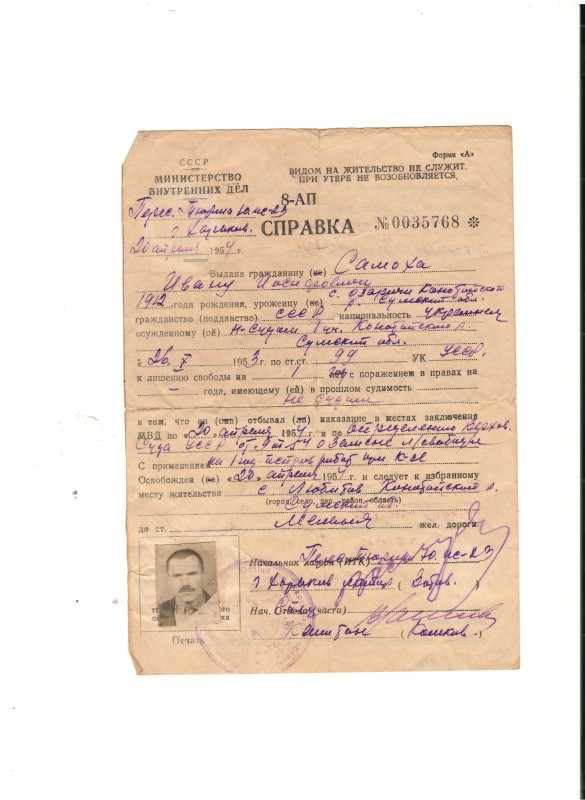 Форма «А»
СССР
МИНИСТЕРСТВО
ВНУТРЕННИХ ДЕЛ
ВИДОМ НА ЖИТЕЛЬСТВО НЕ СЛУЖИТ.
ПРИ УТЕРЕ НЕ ВОЗОБНОВЛЯЕТСЯ.
8-АП
Перес. Тюрьма
г. Харьков.
СПРАВКА №0035768 ✻
20 апреля 1954 г.
Выдана гражданину (ке) Самоха
Ивану Иосифовичу
1912 года рождения, уроженцу (ке) с. Озаричи Конотопского
р. Сумской обл.
гражданство (подданство) СССР национальность украинец
осужденному (ой) Н-Судом 1 уч. Конотопского р.
Сумской обл.
« 26 » X 1953 г. по ст.ст. 99 УК УССР.
к лишению свободы на 1 год с поражением в правах на
— года, имеющему (ей) в прошлом судимость
не судим
в том, что он (она) отбывал (ла) наказание в местах заключения
МВД по «20» апреля 1954 г. и по определению Верхов.
Суда УССР от
С применением на 1 год
Освобожден (на) «20» апреля 1954 г. и следует к избранному
месту жительства с. Конотопского р.
(город, село, дер. район, область)
Сумской об.
до ст. Мельня жел. дороги.
Начальник лагеря (ИТК) Перес. Тюрьмы
г. Харьков
Нач. Отдела (части)
Капитан
Печать